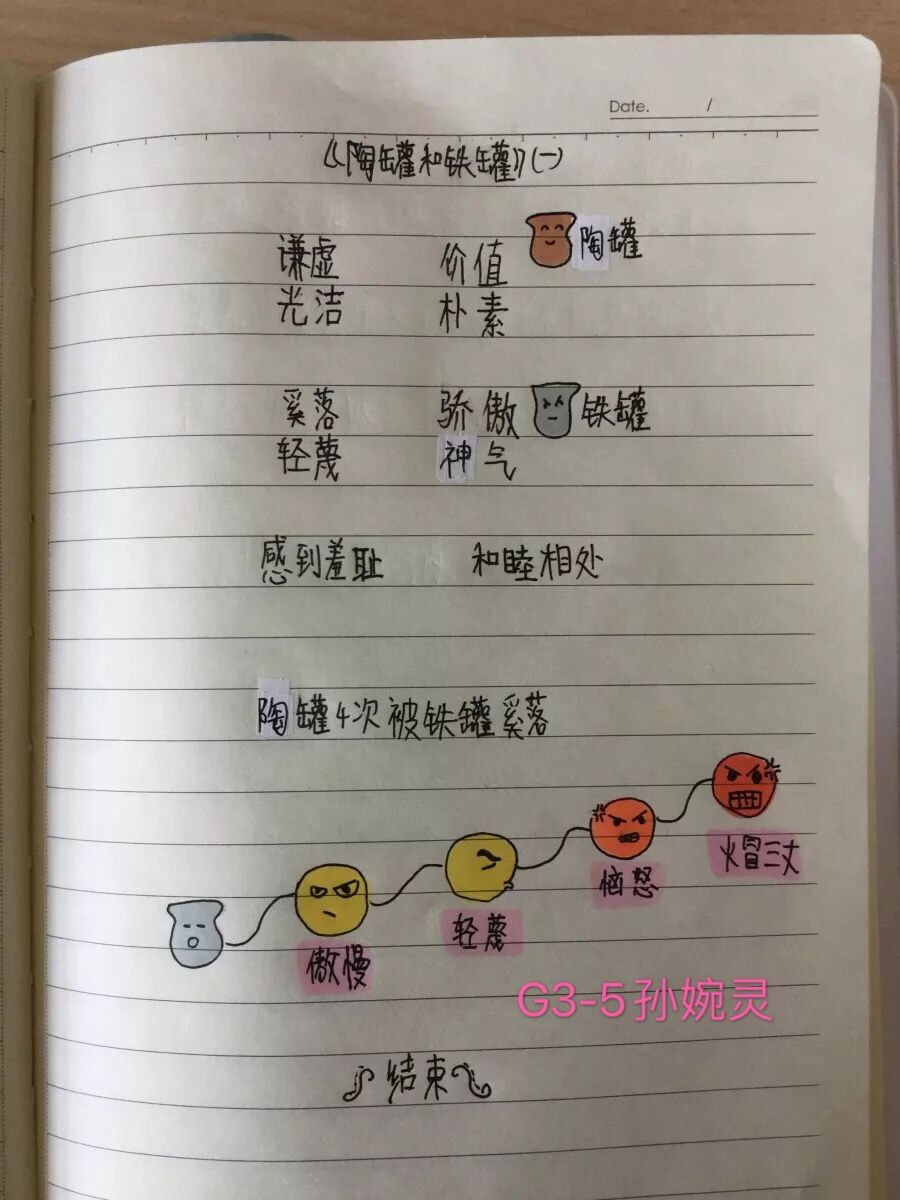 Date. /
《陶罐和铁罐》(一)
谦虚 价值 陶罐
光洁 朴素
奚落 骄傲 铁罐
轻蔑 神气
感到羞耻 和睦相处
陶罐4次被铁罐奚落
火冒三丈
恼怒
轻蔑
傲慢
G3-5孙婉灵
结束